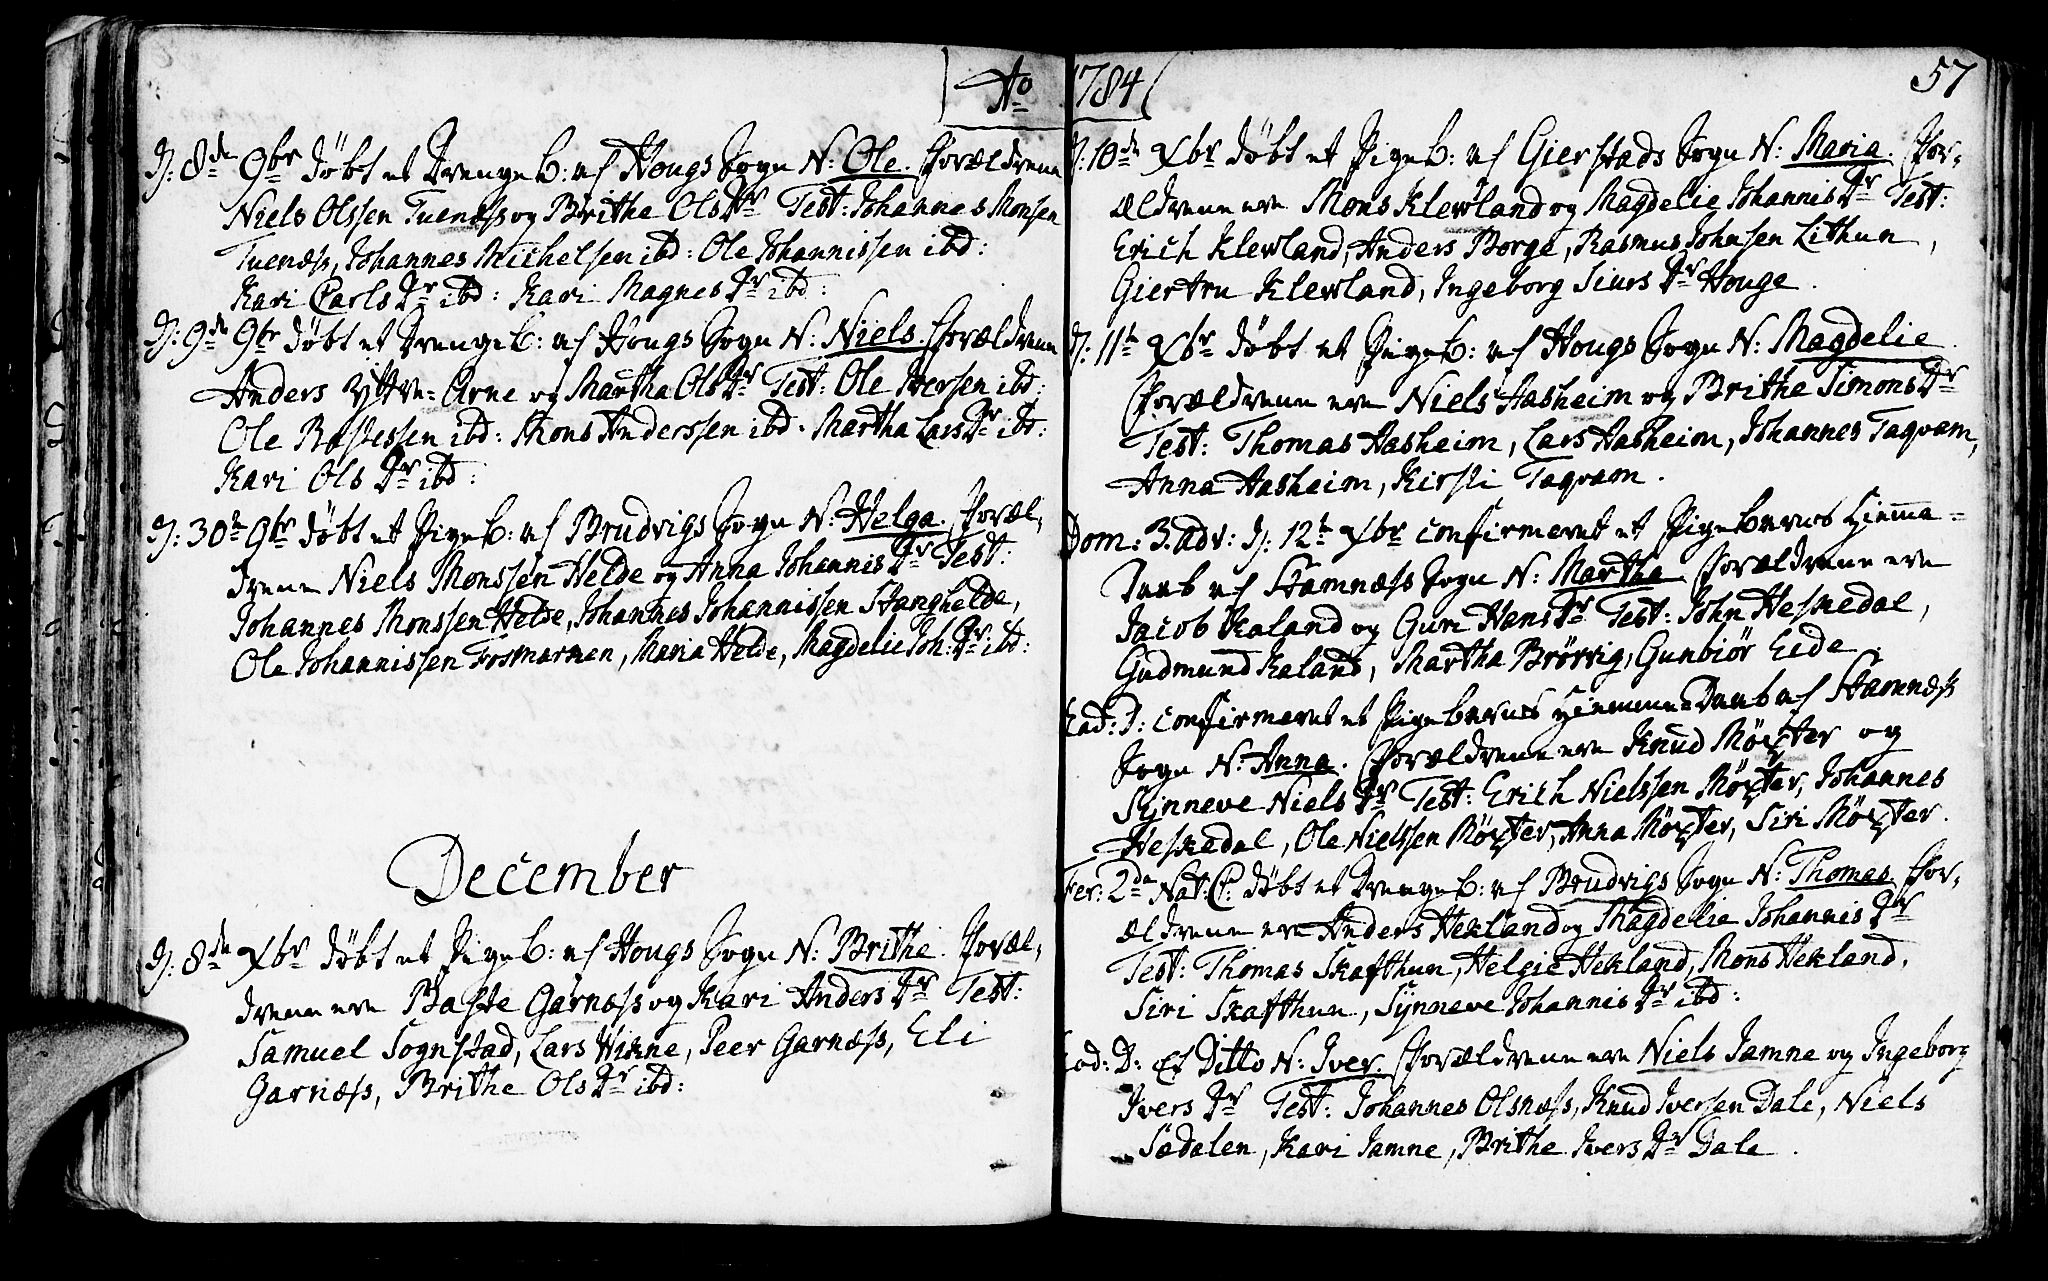 Ao 1784
57
D: 8de 9br døbt et Drengeb: af Hougs Sogn N: Ole. Forældrene
Niels Olssen Tuenæss og Brithe Ols Dr Test: Johannes Monsen
Tuenæss, Johannes Michelsen ibd: Ole Johannissen ibd:
Kari Carls Dr ibd: Kari Magnes Dr ibd:
D: 9de 9br døbt et Drengeb: af Hougs Sogn N: Niels. Forældrene
Anders Yttre-Arne og Martha Ols Dr Test: Ole Iversen ibd:
Ole Bastessen ibd: Mons Anderssen ibd. Martha Lars Dr ibd:
Kari Ols Dr ibd:
D: 30te 9br døbt et Pigeb: af Brudvigs Sogn N: Helga. Foræl-
drene Niels Monssen Helde og Anna Johannis Dr Test:
Johannes Monssen Helde, Johannes Johannissen Stanghelde,
Ole Johannissen Fosmarken, Maria Helde, Magdelie Joh: Dr ibd:
December
D: 8de Xbr døbt et Pigeb: af Hougs Sogn N: Brithe. Foræl-
drene ere Baste Garnæss og Kari Anders Dr Test:
Samuel Sognstad, Lars Wikne, Peer Garnæss, Eli
Garnæss, Brithe Ols Dr ibd:
D: 10de Xbr døbt et Pigeb: af Gierstads Sogn N: Maria. For-
ældrene ere Mons Klewland og Magdelie Johannis Dr Test:
Erich Klewland, Anders Borge, Rasmus Johnsen Lithun,
Giertru Klewland, Ingeborg Siurs Dr Houge.
D: 11te Xbr døbt et Pigeb: af Hougs Sogn N: Magdelie.
Forældrene ere Niels Aasheim og Brithe Simons Dr
Test: Thomas Aasheim, Lars Aasheim, Johannes Taqvam,
Anna Aasheim, Kirsti Taqvam.
Dom: 3. adv: D: 12te Xbr confirmeret et Pigebarns Hiemme-
Daab af Stamnæss Sogn N: Martha Forældrene ere
Jacob Kaland og Guri Hans Dr Test: John Heskedal,
Gudmund Kaland, Martha Brørvig, Gunbiør Eide.
Eod: D: confirmeret et Pigebarns Hiemme-Daab af Stamnæss
Sogn N: Anna. Forældrene ere Knud Møxter og
Synneve Niels Dr Test: Erich Nielssen Møxter, Johannes
Heskedal, Ole Nielssen Møxter, Anna Møxter, Siri Møxter.
Fer: 2da Nat: C: døbt et Drengeb: af Brudvigs Sogn N: Thomas For-
ældrene ere Anders Hekland og Magdelie Johannis Dr
Test: Thomas Skafthun, Helgie Hekland, Mons Hekland,
Siri Skafthun, Synneve Johannis Dr ibd:
Eod: D: Et Ditto N: Iver. Forældrene ere Niels Jamne og Ingeborg
Ivers Dr Test: Johannes Olsnæss, Knud Iversen Dale, Niels
Sædalen, Kari Jamne, Brithe Ivers Dr Dale.